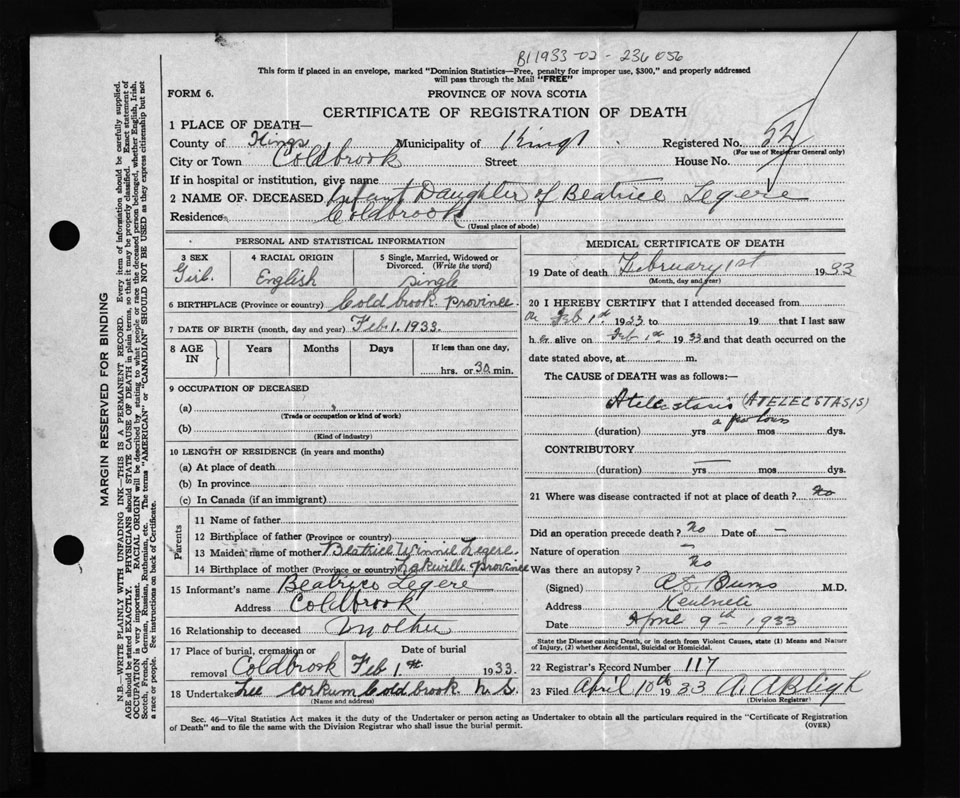 B11933-02-236056
This form if placed in an envelope, marked "Dominion Statistics—Free, penalty for improper use, $300," and properly addressed
will pass through the Mail "FREE"
FORM 6.
PROVINCE OF NOVA SCOTIA
CERTIFICATE OF REGISTRATION OF DEATH
1 PLACE OF DEATH—
County of Kings Municipality of Kings Registered No. 52
(For use of Registrar General only)
City or Town Coldbrook Street House No.
If in hospital or institution, give name
2 NAME OF DECEASED Infant Daughter of Beatrice Legere
Residence Coldbrook
(Usual place of abode)
PERSONAL AND STATISTICAL INFORMATION
3 SEX 4 RACIAL ORIGIN 5 Single, Married, Widowed or
Divorced. (Write the word)
Girl. English Single
6 BIRTHPLACE (Province or country) Coldbrook Province
7 DATE OF BIRTH (month, day and year) Feb 1. 1933.
8 AGE IN Years Months Days If less than one day,
hrs. or 30 min.
9 OCCUPATION OF DECEASED
(a)
(Trade or occupation or kind of work)
(b)
(Kind of industry)
10 LENGTH OF RESIDENCE (in years and months)
(a) At place of death
(b) In province
(c) In Canada (if an immigrant)
Parents
11 Name of father
12 Birthplace of father (Province or country)
13 Maiden name of mother Beatrice Winnie Legere.
14 Birthplace of mother (Province or country) Province
15 Informant's name Beatrice Legere
Address Coldbrook
16 Relationship to deceased Mother
17 Place of burial, cremation or Date of burial
removal Coldbrook Feb 1st. 1933.
18 Undertaker Lee Corkum Coldbrook N.S.
(Name and address)
MEDICAL CERTIFICATE OF DEATH
19 Date of death February 1st 1933
(Month, day and year)
20 I HEREBY CERTIFY that I attended deceased from
on Feb 1st 1933 to 19 that I last saw
h er alive on Feb 1st 1933 and that death occurred on the
date stated above, at m.
The CAUSE of DEATH was as follows:—
Atelectasis (ATELECSTASIS)
a few hours
(duration) yrs mos dys.
CONTRIBUTORY
(duration) yrs mos dys.
21 Where was disease contracted if not at place of death? No
Did an operation precede death? No Date of —
Nature of operation —
Was there an autopsy? No
(Signed) Burns M.D.
Address
Date April 9th 1933
State the Disease causing Death, or in death from Violent Causes, state (1) Means and Nature
of Injury, (2) whether Accidental, Suicidal or Homicidal.
22 Registrar's Record Number 117
23 Filed April 10th 1933 A. A Bligh
(Division Registrar)
Sec. 46—Vital Statistics Act makes it the duty of the Undertaker or person acting as Undertaker to obtain all the particulars required in the "Certificate of Registration
of Death" and to file the same with the Division Registrar who shall issue the burial permit.
(OVER)
MARGIN RESERVED FOR BINDING
N.B.—WRITE PLAINLY WITH UNFADING INK—THIS IS A PERMANENT RECORD. Every item of information should be carefully supplied.
AGE should be stated EXACTLY. PHYSICIANS should STATE CAUSE OF DEATH in plain terms, so that it may be properly classified. Exact statement of
OCCUPATION is very important. RACIAL ORIGIN will be described by stating to what people or race the deceased person belonged, whether English, Irish,
Scotch, French, German, Russian, Ruthenian, etc. The terms "AMERICAN" or "CANADIAN" SHOULD NOT BE USED as they express citizenship but not
a race or people. See instructions on back of Certificate.